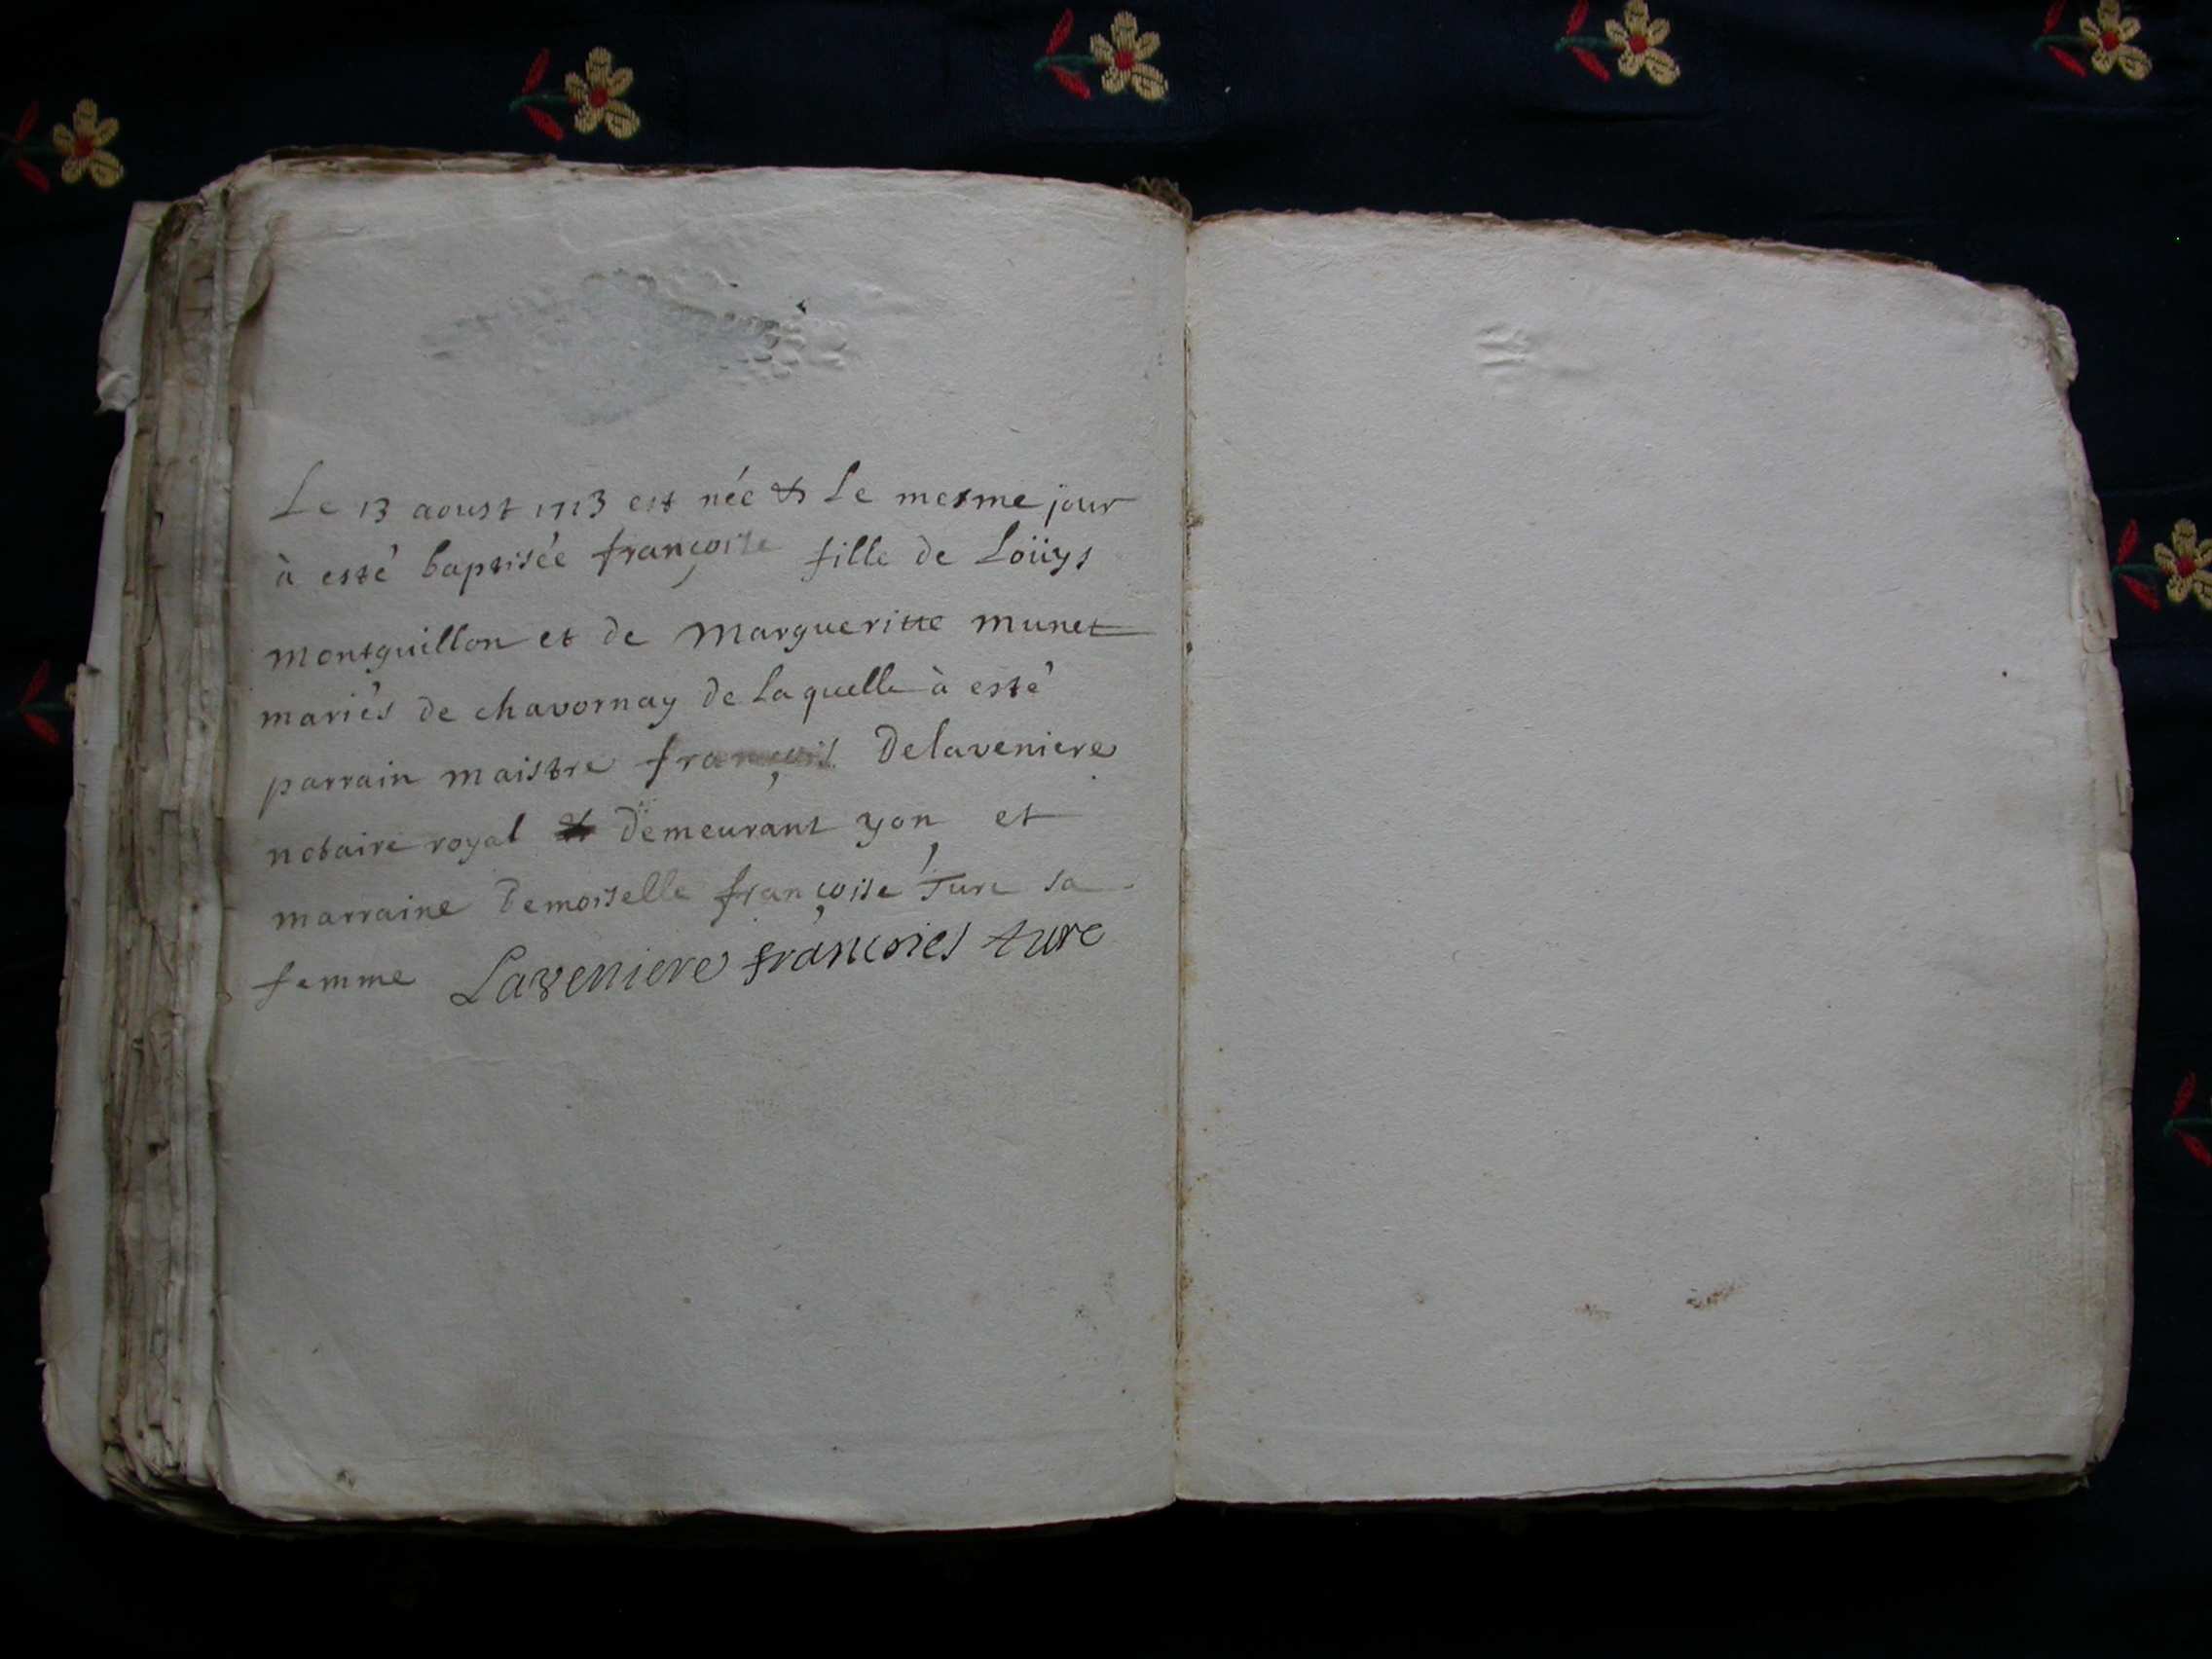 Le 13 aoust 1713 est née & Le mesme jour
à esté baptisée françoise fille de Loüys
montguillon et de Margueritte munet
mariés de chavornay de Laquelle à esté
parrain maistre françois Delaveniere
notaire royal demeurant yon et
marraine Demoiselle françoise Turc sa
femme Laveniere francoies turc